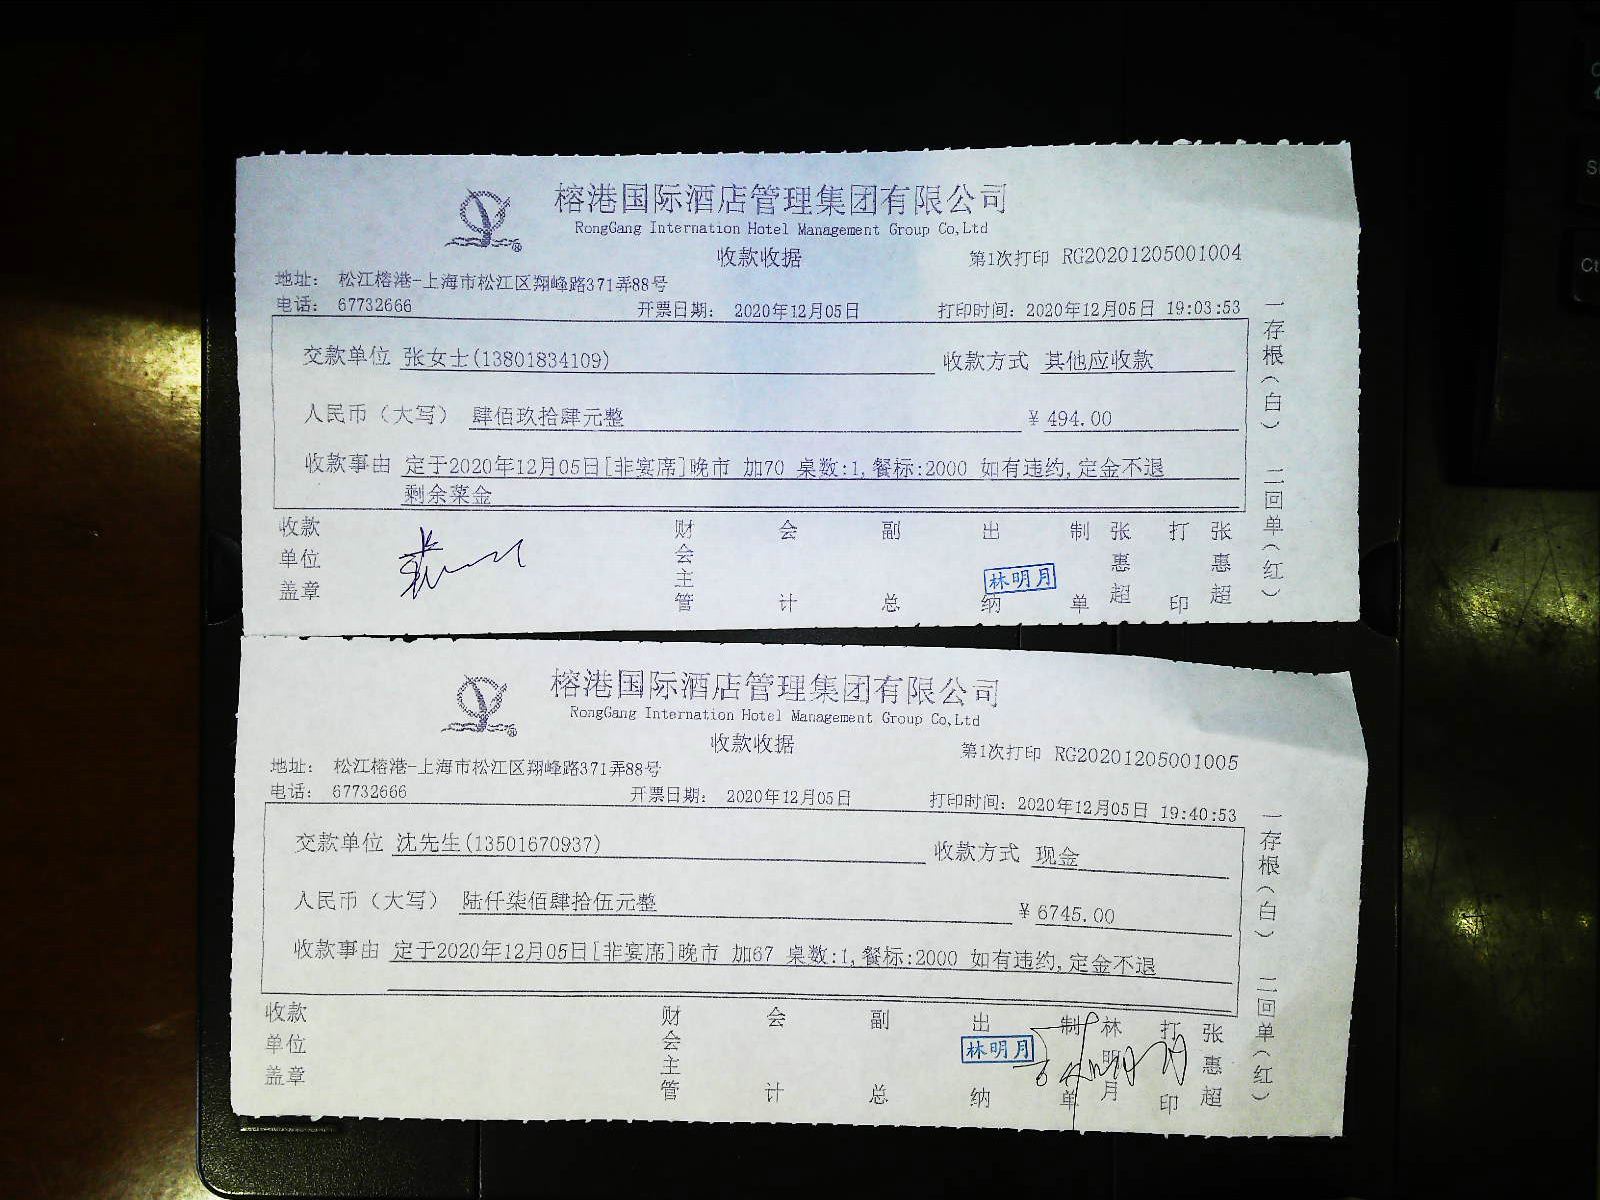 榕港国际酒店管理集团有限公司
RongGang Internation Hotel Management Group Co,Ltd
收款收据 第1次打印 RG20201205001004
地址： 松江榕港-上海市松江区翔峰路371弄88号
电话： 67732666 开票日期： 2020年12月05日 打印时间：2020年12月05日 19:03:53
交款单位 张女士(13801834109) 收款方式 其他应收款
人民币（大写） 肆佰玖拾肆元整 ¥ 494.00
收款事由 定于2020年12月05日[非宴席]晚市 加70 桌数:1,餐标:2000 如有违约,定金不退
剩余菜金
收款单位盖章 财会主管 会计 副总 出纳 林明月 制单 张惠超 打印 张惠超
一存根（白） 二回单（红）
榕港国际酒店管理集团有限公司
RongGang Internation Hotel Management Group Co,Ltd
收款收据 第1次打印 RG20201205001005
地址： 松江榕港-上海市松江区翔峰路371弄88号
电话： 67732666 开票日期： 2020年12月05日 打印时间：2020年12月05日 19:40:53
交款单位 沈先生(13501670937) 收款方式 现金
人民币（大写） 陆仟柒佰肆拾伍元整 ¥ 6745.00
收款事由 定于2020年12月05日[非宴席]晚市 加67 桌数:1,餐标:2000 如有违约,定金不退
收款单位盖章 财会主管 会计 副总 出纳 林明月 制单 林明月 打印 张惠超
一存根（白） 二回单（红）